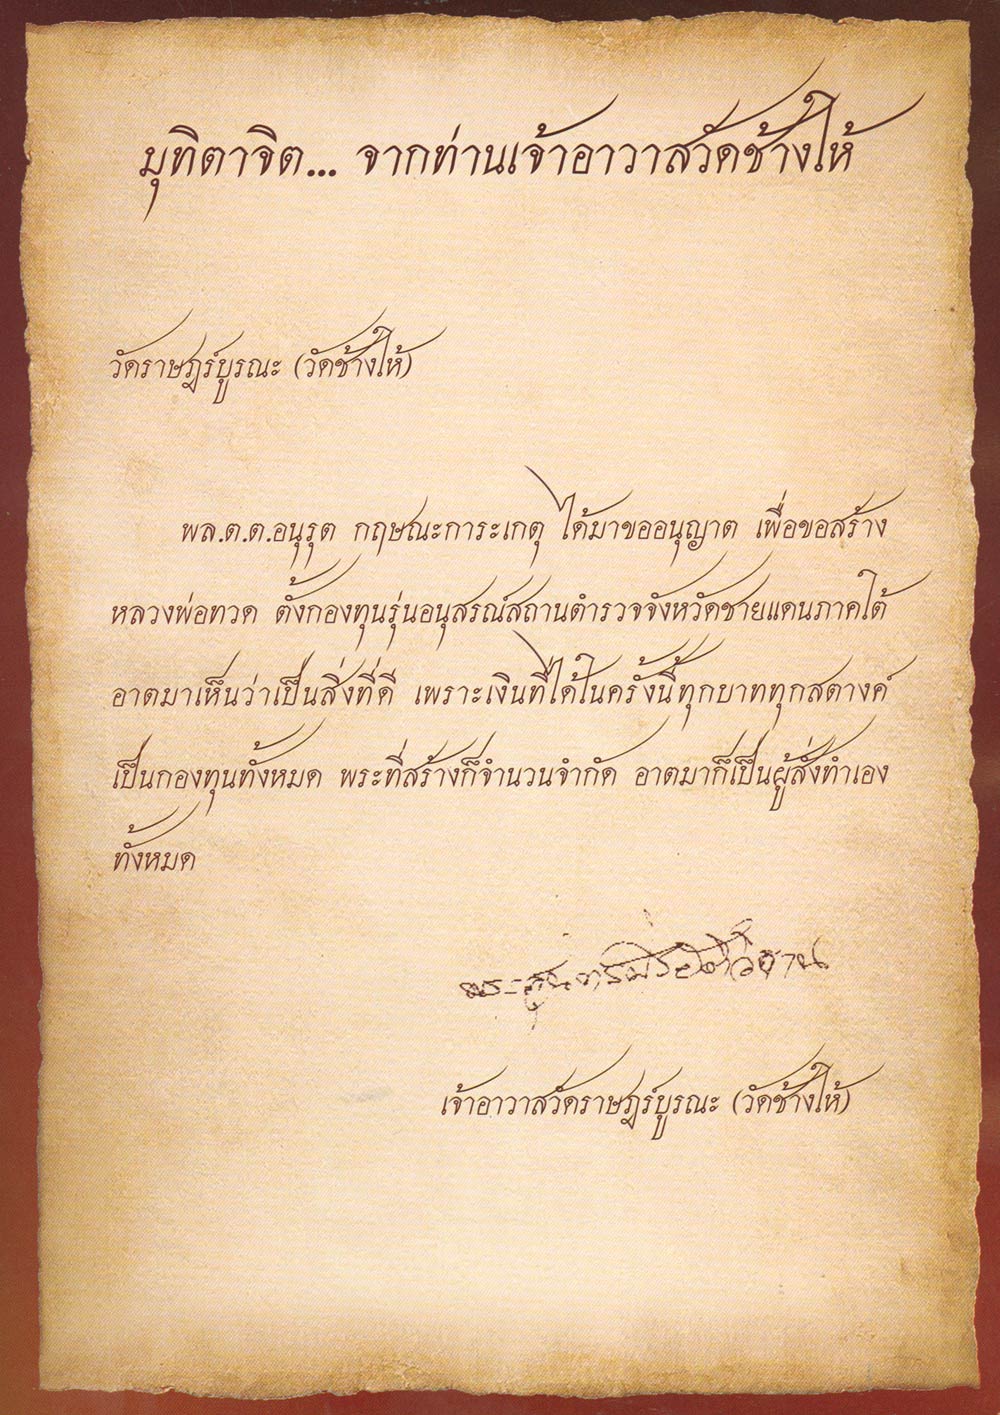 มุทิตาจิต... จากท่านเจ้าอาวาสวัดช้างให้
วัดราษฎร์บูรณะ (วัดช้างให้)
พล.ต.ต.อนุรุต กฤษณะการะเกตุ ได้มาขออนุญาต เพื่อขอสร้าง
หลวงพ่อทวด ตั้งกองทุนรุ่นอนุสรณ์สถานตำรวจจังหวัดชายแดนภาคใต้
อาตมาเห็นว่าเป็นสิ่งที่ดี เพราะเงินที่ได้ในครั้งนี้ทุกบาททุกสตางค์
เป็นกองทุนทั้งหมด พระที่สร้างก็จำนวนจำกัด อาตมาก็เป็นผู้สั่งทำเอง
ทั้งหมด
เจ้าอาวาสวัดราษฎร์บูรณะ (วัดช้างให้)